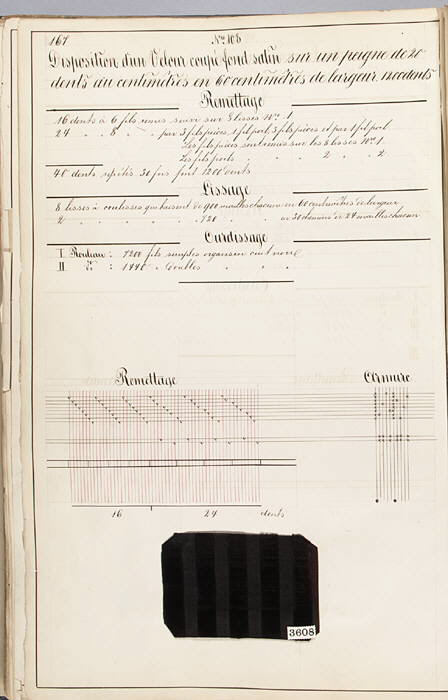 167
No 108
Disposition d'un Velour coupé fond satin sur un peigne de 20
dents au centimètres en 60 centimètres de largeur 1200 dents
Remettage
16 dents à 6 fils remis suivi sur 8 lisses No 1
24 " " 8 " " par 3 fils pièces, 1 fil poil, 3 fils pièces et par 1 fil poil
Les fils pièces sont remis sur les 8 lisses No 1
Les fils poils " " " 2 " " 2
40 dents répétés 30 fois font 1200 dents
Lissage
8 lisses à coulisses qui lasseront de 900 mailles chacune en 60 centimètres de largeur
2 " " " 720 " " en 30 chemins de 24 mailles chacun
Ourdissage
I Rouleau : 7200 fils simples organsin cuit noir
II do : 1440 " doubles " " "
Remettage
Armure
16 24 dents
3608